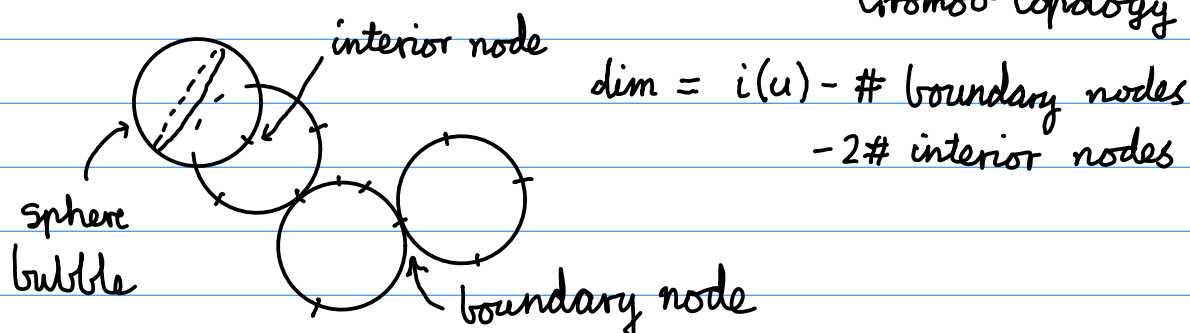 topology
interior node
dim = i(u) - # boundary nodes
- 2# interior nodes
sphere
bubble
boundary node